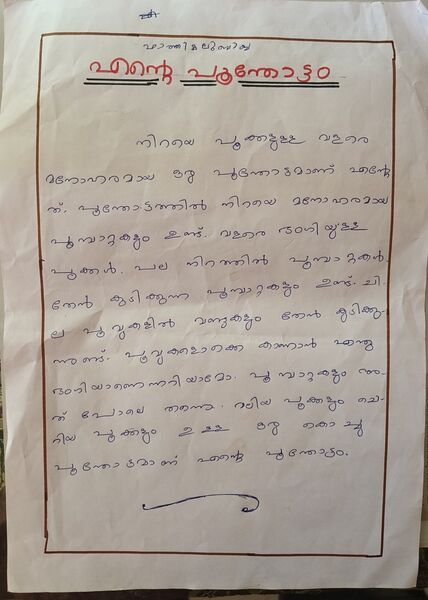 ഫാത്തിമലുബാബ
എന്റെ പൂന്തോട്ടം
നിറയെ പൂക്കളുള്ള വളരെ
മനോഹരമായ ഒരു പൂന്തോട്ടമാണ് എന്റേ
ത്. പൂന്തോട്ടത്തിൽ നിറയെ മനോഹരമായ
പൂമ്പാറ്റകളും ഉണ്ട്. വളരെ ഭംഗിയുള്ള
പൂക്കൾ. പല നിറത്തിൽ പൂമ്പാറ്റകൾ.
തേൻ കുടിക്കുന്ന പൂമ്പാറ്റകളും ഉണ്ട്. ചി
ല പൂവുകളിൽ വണ്ടുകളും തേൻ കുടിക്കു-
ന്നുണ്ട്. പൂവുകളൊക്കെ കാണാൻ എന്തു
ഭംഗിയാണെന്നറിയാമോ. പൂമ്പാറ്റകളും അ-
ത് പോലെ തന്നെ. വലിയ പൂക്കളും ചെ-
റിയ പൂക്കളും ഉള്ള ഒരു കൊച്ചു
പൂന്തോട്ടമാണ് എന്റെ പൂന്തോട്ടം.